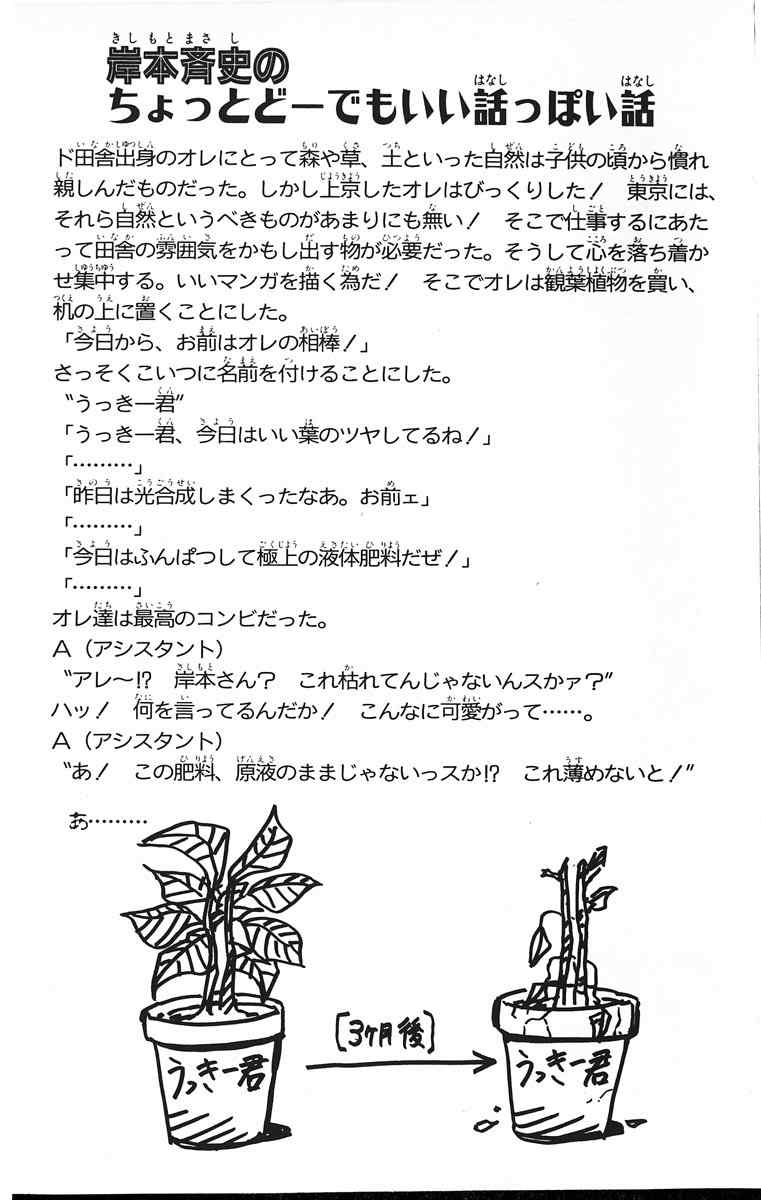 岸本斉史の
ちょっとどーでもいい話っぽい話
ド田舎出身のオレにとって森や草、土といった自然は子供の頃から慣れ
親しんだものだった。しかし上京したオレはびっくりした！　東京には、
それら自然というべきものがあまりにも無い！　そこで仕事するにあた
って田舎の雰囲気をかもし出す物が必要だった。そうして心を落ち着か
せ集中する。いいマンガを描く為だ！　そこでオレは観葉植物を買い、
机の上に置くことにした。
「今日から、お前はオレの相棒！」
さっそくこいつに名前を付けることにした。
〝うっきー君〟
「うっきー君、今日はいい葉のツヤしてるね！」
「………」
「昨日は光合成しまくったなあ。お前ェ」
「………」
「今日はふんぱつして極上の液体肥料だぜ！」
「………」
オレ達は最高のコンビだった。
A（アシスタント）
〝アレ〜!?　岸本さん？　これ枯れてんじゃないんスかァ？〟
ハッ！　何を言ってるんだか！　こんなに可愛がって……。
A（アシスタント）
〝あ！　この肥料、原液のままじゃないっスか!?　これ薄めないと！〟
あ………
[3ケ月後]
うっきー君
うっきー君